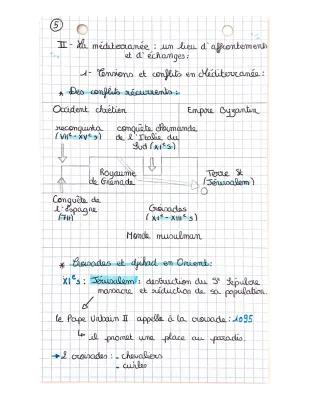 5
II - La méditerranée : un lieu d'affrontements
et d'échanges:
1 - Tensions et conflits en Méditerranée :
* Des conflits récurrents :
Occident chrétien
Empire Byzantin
reconquista
(VIIIe - XVe s)
conquête Normande
de l'Italie du
Sud (XIe s)
Royaume
de Grenade
Terre St
(Jérusalem)
Conquête de
l'Espagne
(711)
Croisades
(XIe - XIIIe s)
Monde musulman
* Croisades et djihad en Orient:
XIe s : Jérusalem : destruction du St Sépulcre
massacre et réduction de sa population.
le Pape Urbain II appelle à la croisade : 1095
↳ il promet une place au paradis.
→ 2 croisades : - chevaliers
- civiles